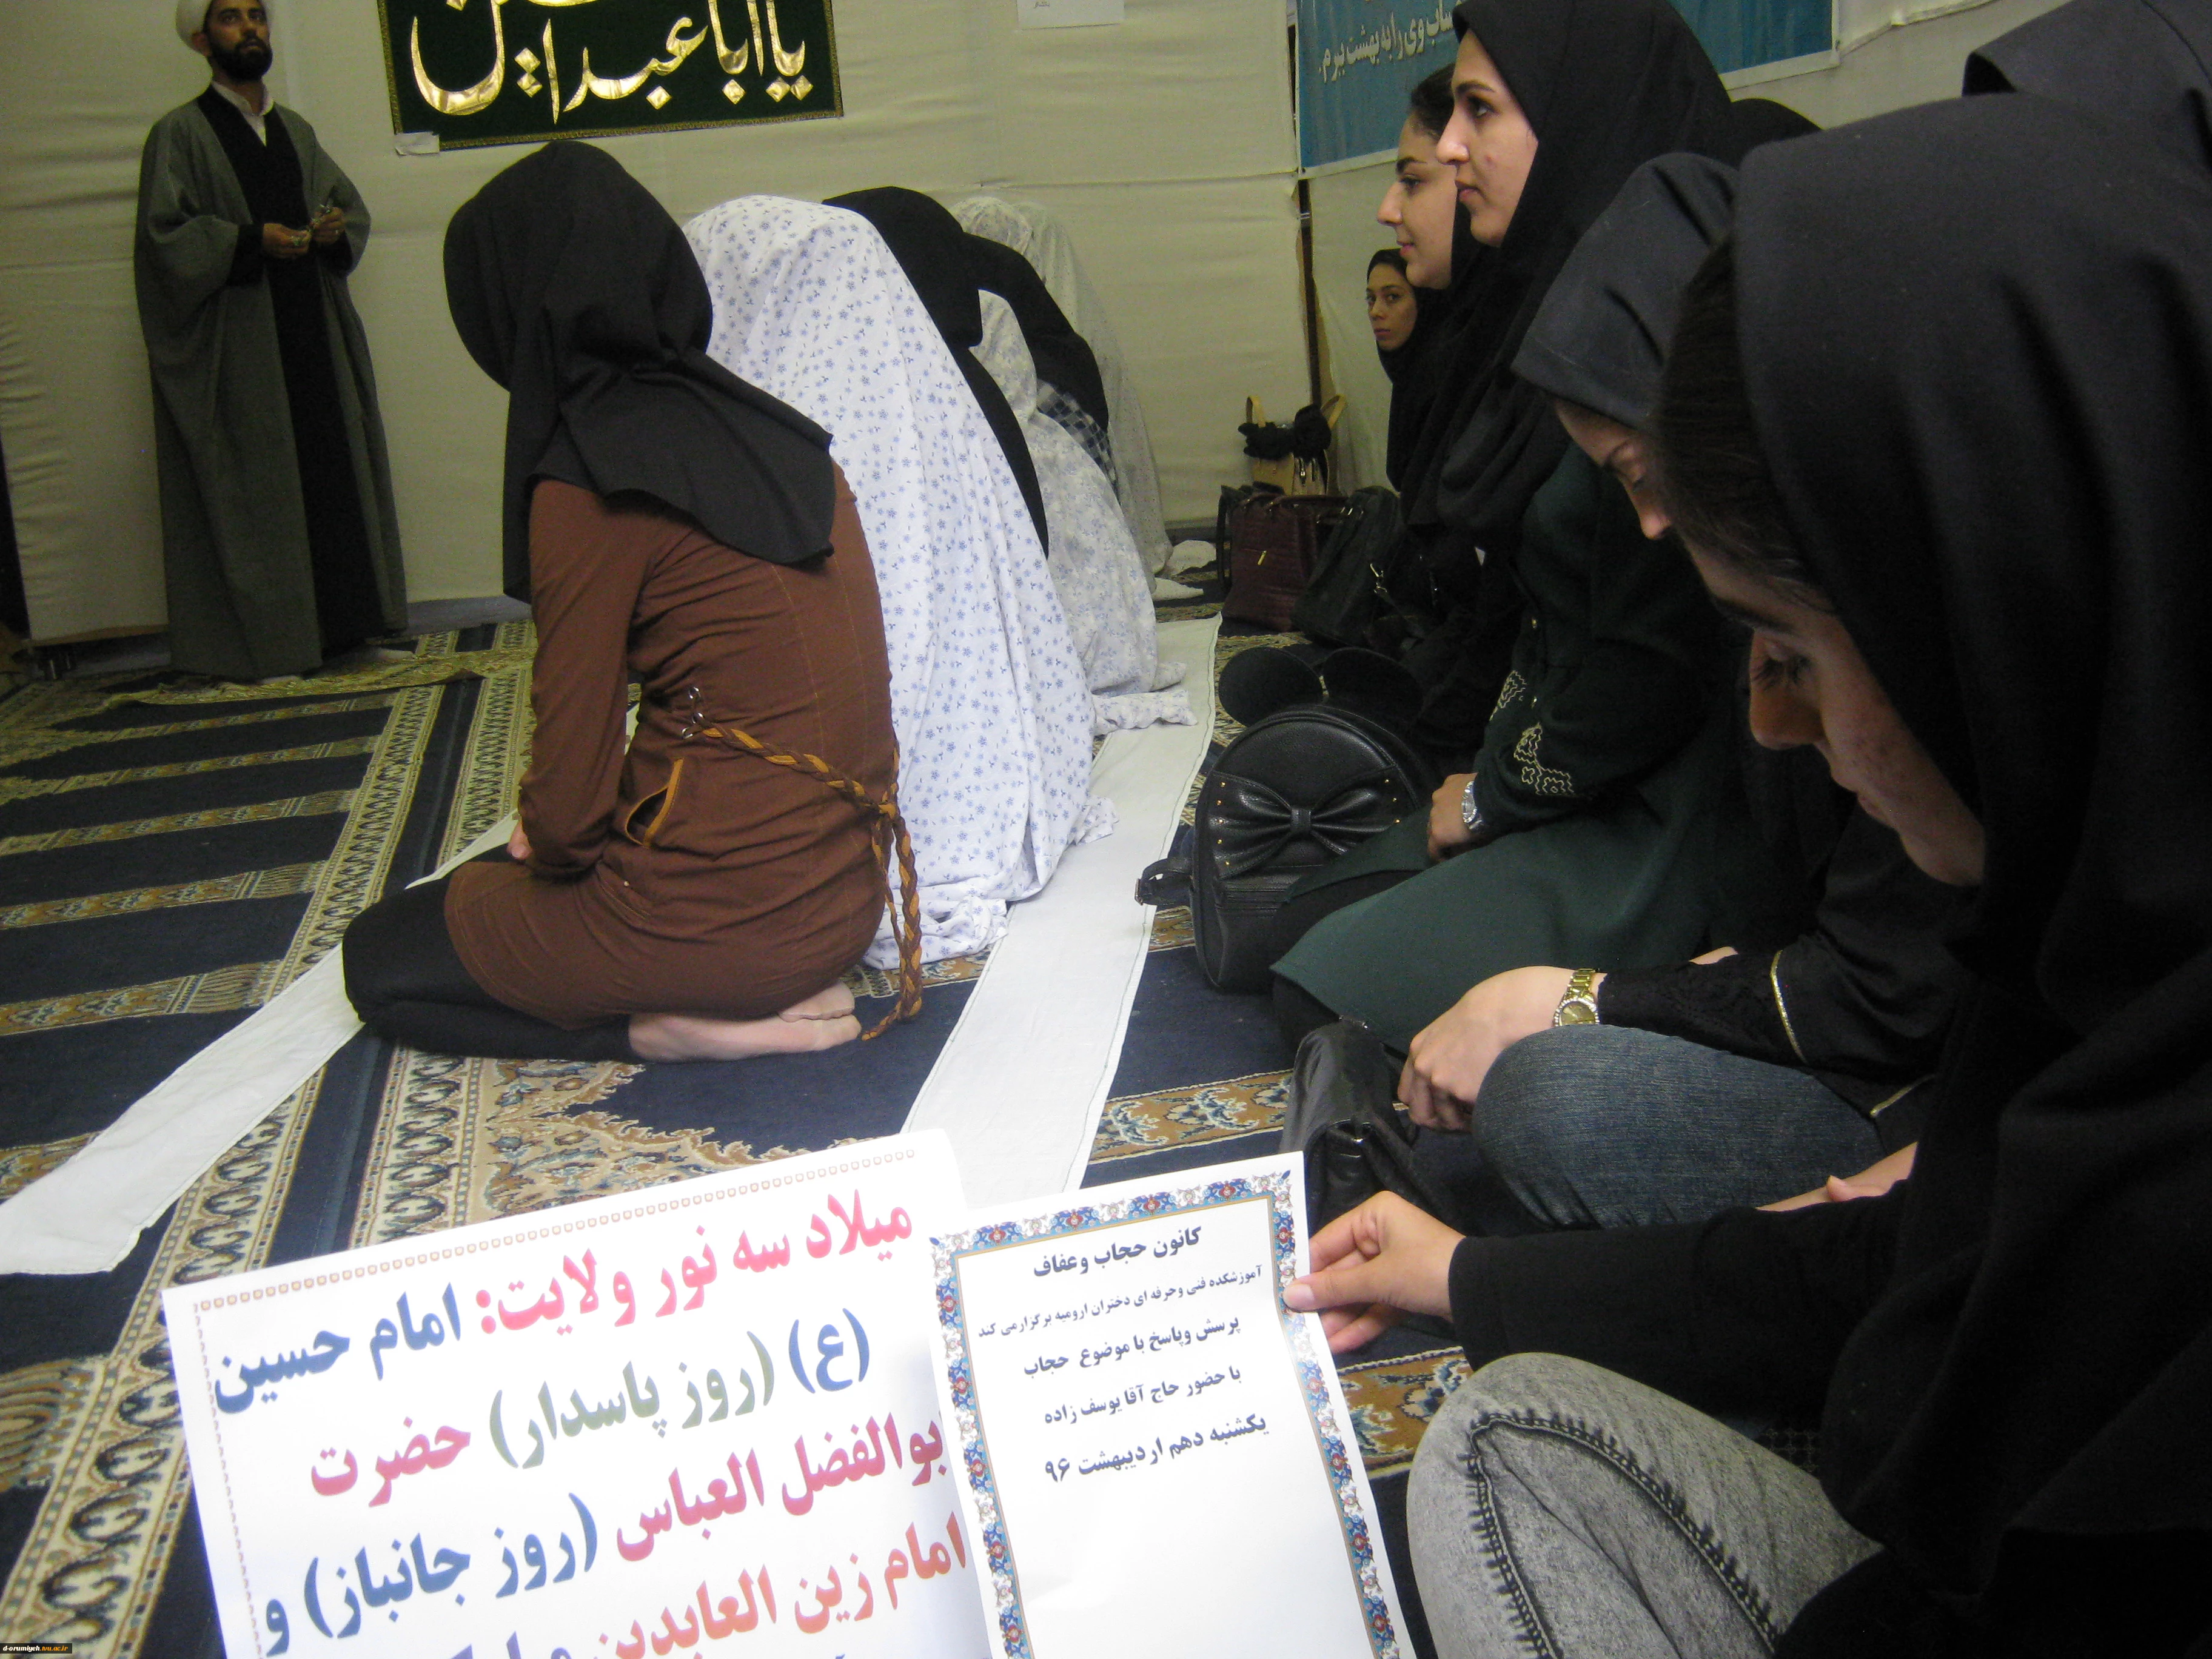 یا اباعبدا
ساب وی را به بهشت برم.
میلاد سه نور ولایت: امام حسین
(ع) (روز پاسدار) حضرت
بوالفضل العباس (روز جانباز) و
امام زین العابدین
کانون حجاب وعفاف
آموزشکده فنی وحرفه ای دختران ارومیه برگزارمی کند
پرسش وپاسخ با موضوع حجاب
با حضور حاج آقا یوسف زاده
یکشنبه دهم اردیبهشت ۹۶
d-orumiyeh.tvu.ac.ir